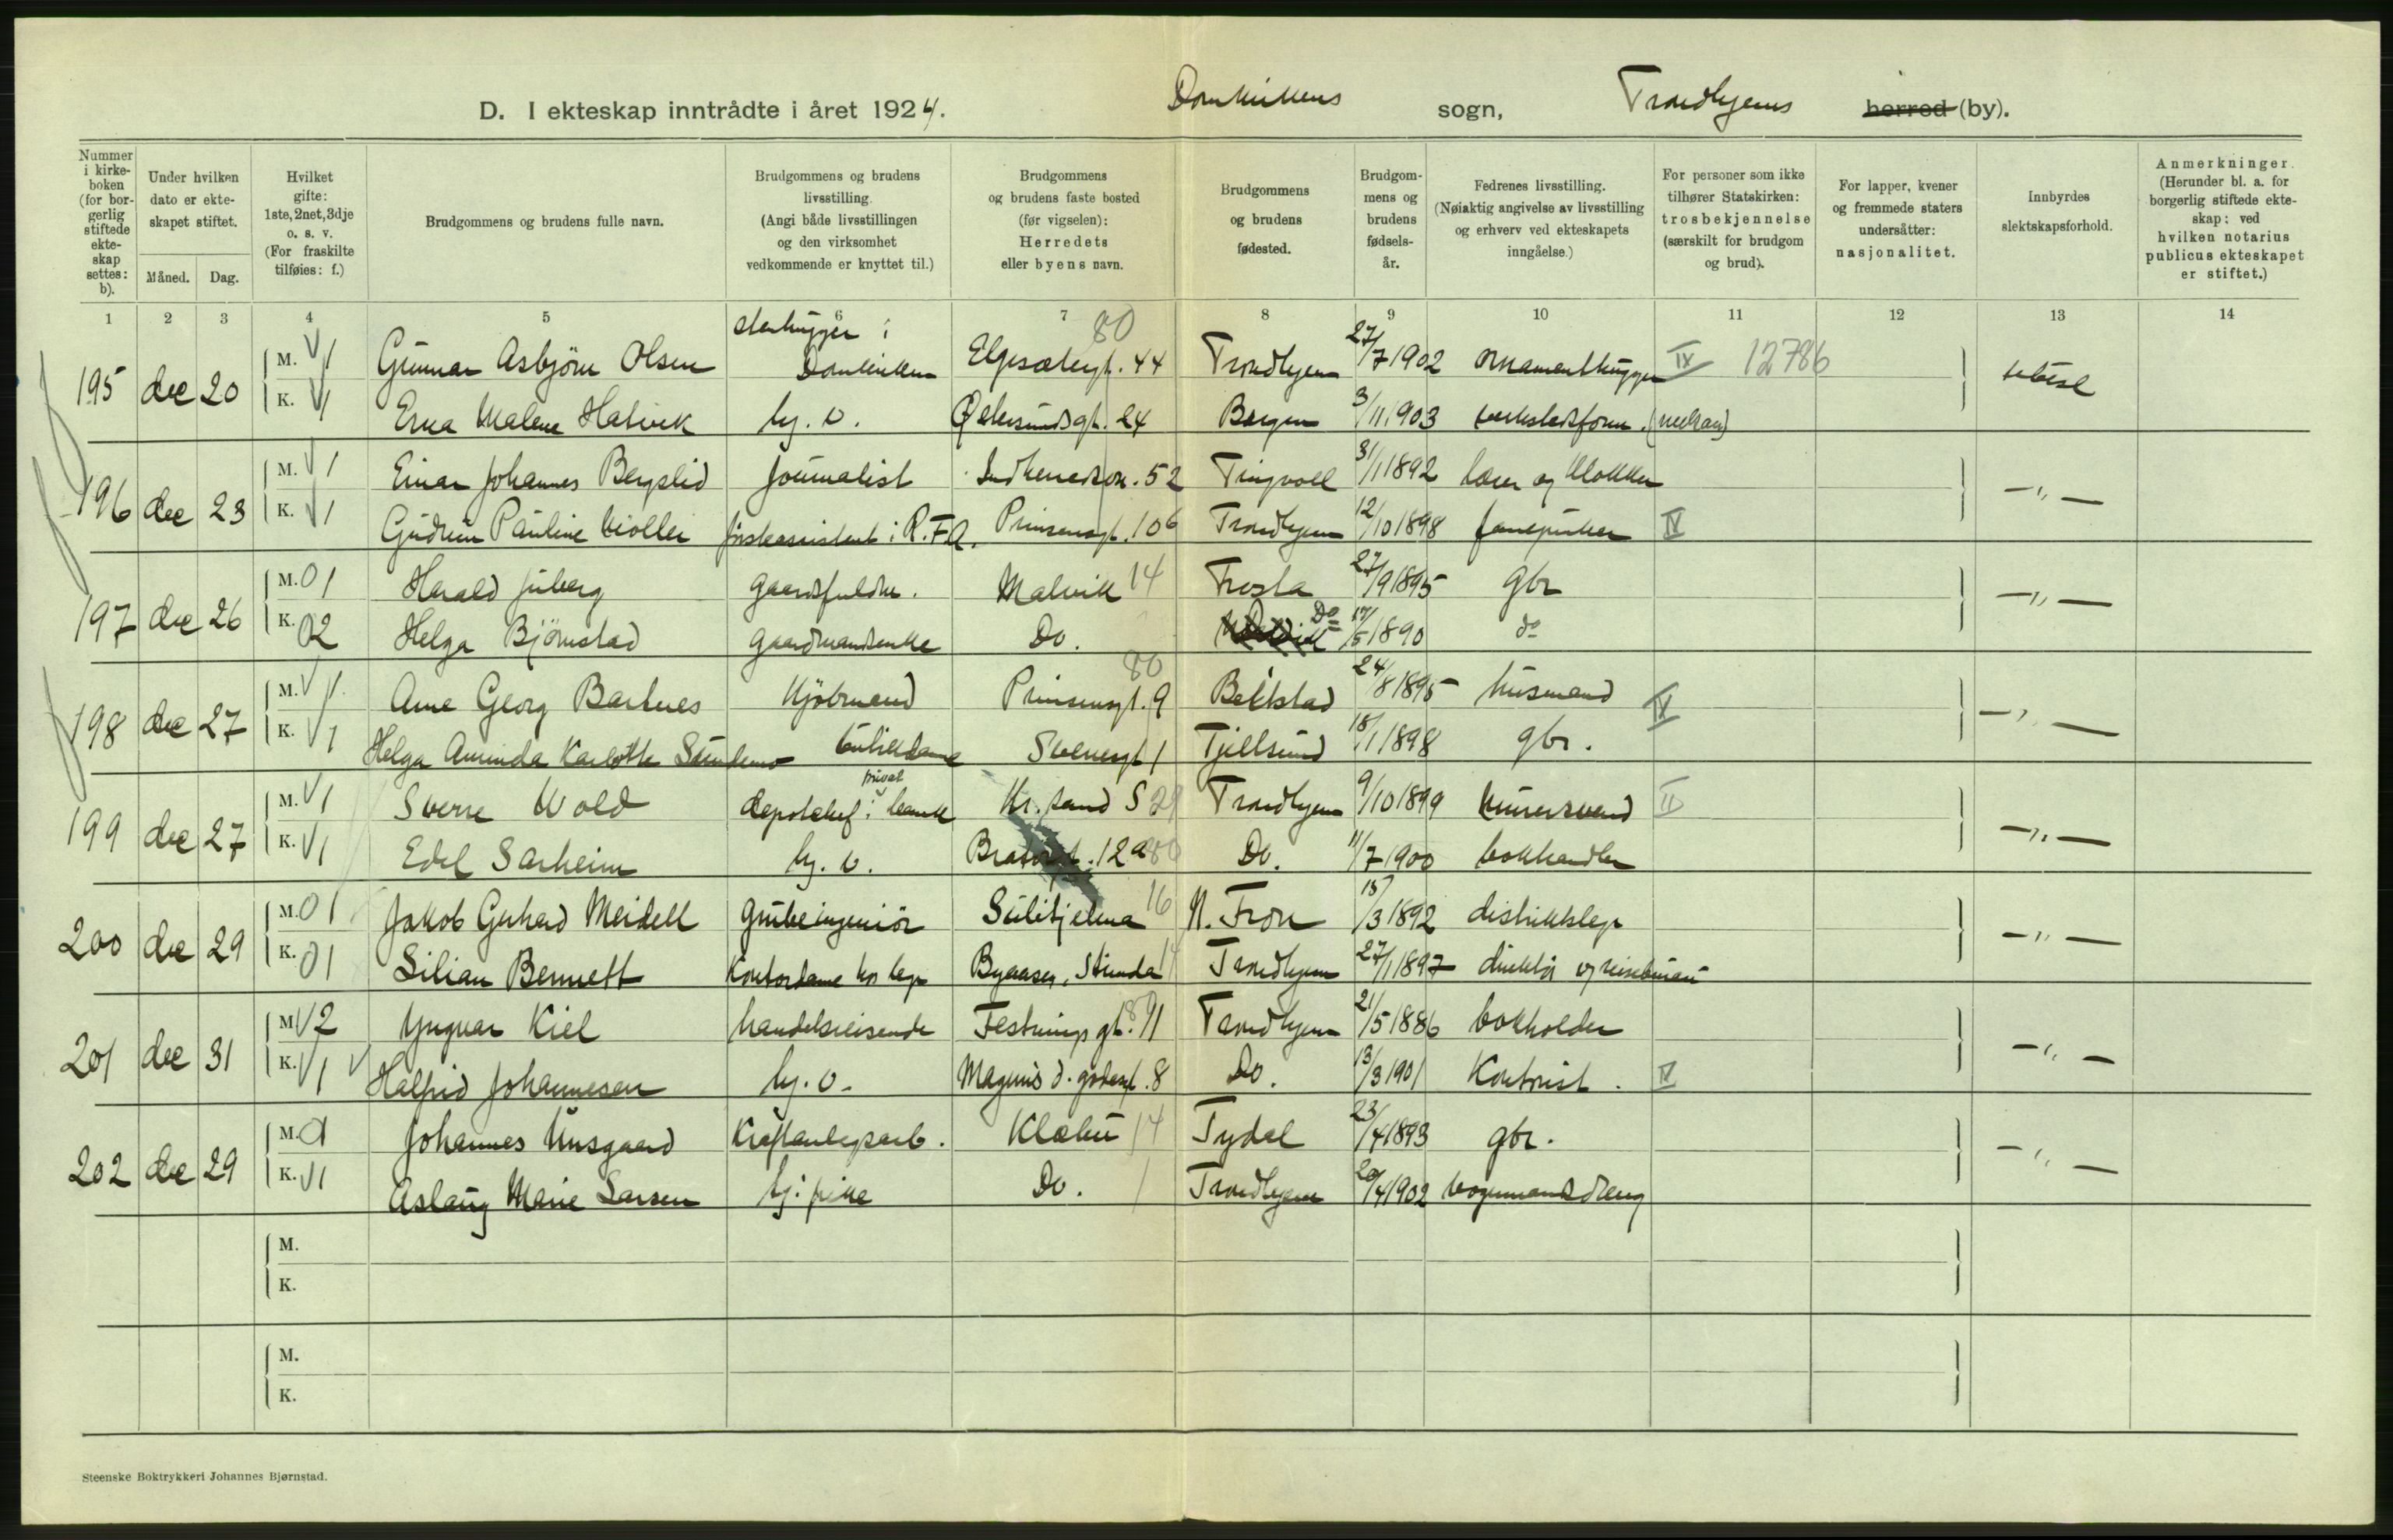 D. I ekteskap inntrådte i året 1924. Domkirkens sogn, Trondhjems herred (by).
Nummer i kirke-boken (for bor-gerlig stiftede ekte-skap settes: b).
Under hvilken dato er ekte-skapet stiftet.
Måned. Dag.
Hvilket gifte: 1ste, 2net, 3dje o. s. v. (For fraskilte tilføies: f.)
Brudgommens og brudens fulle navn.
Brudgommens og brudens livsstilling. (Angi både livsstillingen og den virksomhet vedkommende er knyttet til.)
Brudgommens og brudens faste bosted (før vigselen): Herredets eller byens navn.
Brudgommens og brudens fødested.
Brudgom-mens og brudens fødsels-år.
Fedrenes livsstilling. (Nøiaktig angivelse av livsstilling og erhverv ved ekteskapets inngåelse.)
For personer som ikke tilhører Statskirken: trosbekjennelse (særskilt for brudgom og brud).
For lapper, kvener og fremmede staters undersåtter: nasjonalitet.
Innbyrdes slektskapsforhold.
Anmerkninger. (Herunder bl. a. for borgerlig stiftede ekte-skap: ved hvilken notarius publicus ekteskapet er stiftet.)
1 2 3 4 5 6 7 8 9 10 11 12 13 14
stenhugger i 80
195 dec 20 M. 1 Gunnar Asbjörn Olsen Domkirken Elgesætergt. 44 Trondhjem 27/7 1902 ornamenthugger IX 12786
K. 1 Erna Malene Hatvik hj. v. Østersundsgt. 24 Bergen 3/11 1903 verkstedsform. (mekan)
196 dec 23 M. 1 Einar Johannes Bergslid journalist Indherredsv. 52 Tingvoll 31/1 1892 lærer og klokker —"—
K. 1 Gudrun Pauline Möller försteassistent i R.F.A. Prinsensgt. 106 Trondhjem 12/10 1898 IX
197 dec 26 M. 01 Harald Juberg gaardsfuldm. Malvik 14 Frosta 27/9 1895 gbr —"—
K. 02 Helga Björnstad gaardmandsenke Do. Do 17/5 1890 do
198 dec 27 M. 1 Arne Georg Barhnes Kjöbmand Prinsensgt. 9 80 Beitstad 24/8 1895 husmand IX —"—
K. 1 Helga Aminda Karlotte butikdame 1 Tjellsund 18/1 1898 gbr.
privat
199 dec 27 M. 1 Sverre Wold depotchef i bank Kr.sand S 29 Trondhjem 9/10 1899 murersvend II —"—
K. 1 Edel Sarheim hj. v. 12 a 80 Do. 11/7 1900 bokhandler
200 dec 29 M. 01 Jakob Gerhard Meidell grubeingeniör Sulitjelma 16 N. Fron 18/3 1892 distriktslege —"—
K. 01 Lilian Bennett Kontordame hos lege Byaasen, Strinda 14 Trondhjem 27/1 1897 direktör
201 dec 31 M. 2 Yngvar Kiel handelsreisende Festningsgt. 11 Trondhjem 21/5 1886 bokholder —"—
K. 1 Halfrid Johannesen hj. v. Magnus d. godesgt. 8 Do. 13/3 1901 Kontorist. IX
202 dec 29 M. 01 Johannes Unsgaard Kraftanlegsarb. Klæbu 14 Tydal 23/4 1893 gbr. —"—
K. 1 Aslaug Marie Larsen hj. pike Do. Trondhjem 20/4 1902 vognmandsdreng
M.
K.
M.
K.
Steenske Boktrykkeri Johannes Bjørnstad.